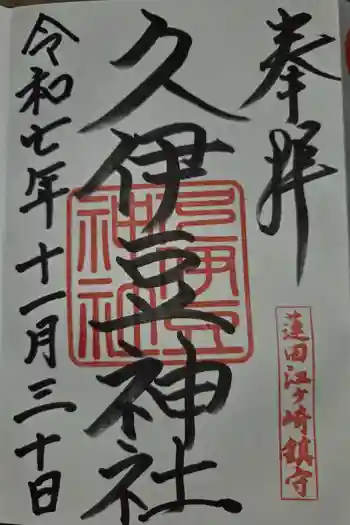 奉拝
蓮田江ヶ崎鎮守
久伊豆神社
久伊豆神社
令和七年十一月三十日